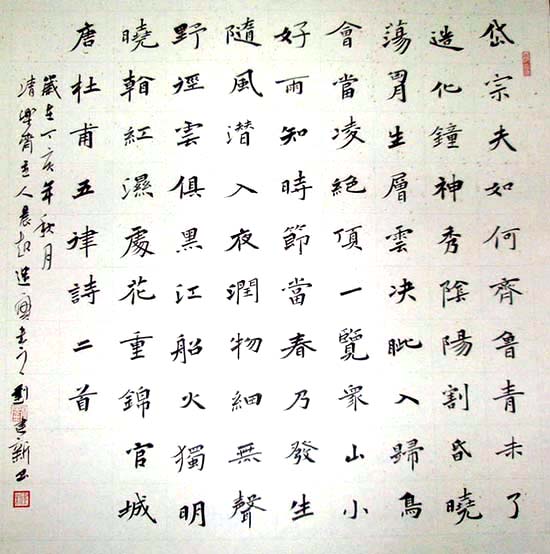 岱宗夫如何齊魯青未了
造化鐘神秀陰陽割昏曉
蕩胷生層雲决眦入歸鳥
會當凌絕頂一覽眾山小
好雨知時節當春乃發生
隨風潜入夜潤物細無聲
野徑雲俱黑江船火獨明
曉看紅濕處花重錦官城
唐杜甫五律詩二首
歲在丁亥年秋月
清齋主人晨起遣劉建新書